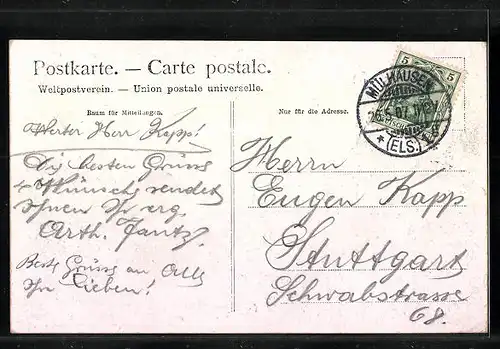 Postkarte. — Carte postale.
Weltpostverein. — Union postale universelle.
Raum für Mitteilungen.
Nur für die Adresse.
5 5
MÜLHAUSEN
(ELS.)
Werter Herr Kapp!
Die besten Grüss
& Wünsche sendet
Ihnen Ihr erg.
Arth. Jantz.
Beste Grüss an All
Ihr Lieben!
Herrn
Eugen Kapp
Stuttgart
Schwabstrasse
68.